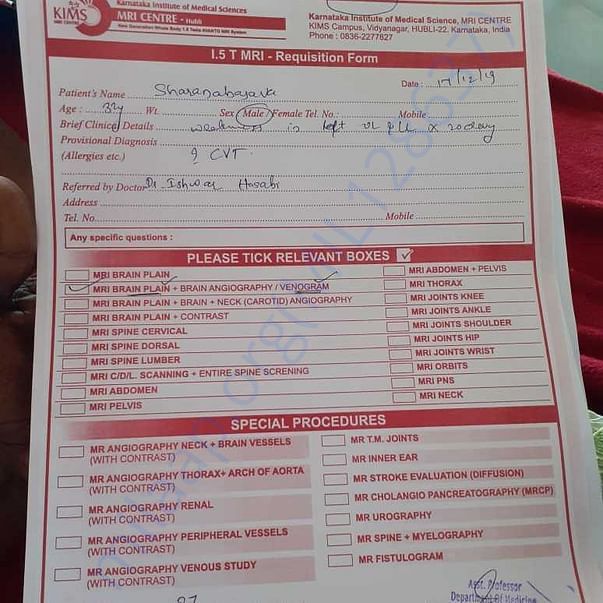 Karnataka Institute of Medical Sciences
KIMS
MRI CENTRE
MRI CENTRE - Hubli
Karnataka Institute of Medical Science, MRI CENTRE
KIMS Campus, Vidyanagar, HUBLI-22. Karnataka, India
Phone : 0836-2277627
1.5 T MRI - Requisition Form
Date : 17/12/19
Patient's Name Sharanabasava
Age : 32y Wt. Sex Male / Female Tel. No.: Mobile
Brief Clinical Details weakness in left UL & LL x 20day
Provisional Diagnosis
(Allergies etc.) ? CVT
Referred by Doctor Dr. Ishwar Hasabi
Address
Tel. No. Mobile
Any specific questions :
PLEASE TICK RELEVANT BOXES
MRI BRAIN PLAIN
MRI BRAIN PLAIN + BRAIN ANGIOGRAPHY / VENOGRAM
MRI BRAIN PLAIN + BRAIN + NECK (CAROTID) ANGIOGRAPHY
MRI BRAIN PLAIN + CONTRAST
MRI SPINE CERVICAL
MRI SPINE DORSAL
MRI SPINE LUMBER
MRI C/D/L. SCANNING + ENTIRE SPINE SCRENING
MRI ABDOMEN
MRI PELVIS
MRI ABDOMEN + PELVIS
MRI THORAX
MRI JOINTS KNEE
MRI JOINTS ANKLE
MRI JOINTS SHOULDER
MRI JOINTS HIP
MRI JOINTS WRIST
MRI ORBITS
MRI PNS
MRI NECK
SPECIAL PROCEDURES
MR ANGIOGRAPHY NECK + BRAIN VESSELS
(WITH CONTRAST)
MR ANGIOGRAPHY THORAX+ ARCH OF AORTA
(WITH CONTRAST)
MR ANGIOGRAPHY RENAL
(WITH CONTRAST)
MR ANGIOGRAPHY PERIPHERAL VESSELS
(WITH CONTRAST)
MR ANGIOGRAPHY VENOUS STUDY
(WITH CONTRAST)
MR T.M. JOINTS
MR INNER EAR
MR STROKE EVALUATION (DIFFUSION)
MR CHOLANGIO PANCREATOGRAPHY (MRCP)
MR UROGRAPHY
MR SPINE + MYELOGRAPHY
MR FISTULOGRAM
Asst. Professor
Department Of Medicine